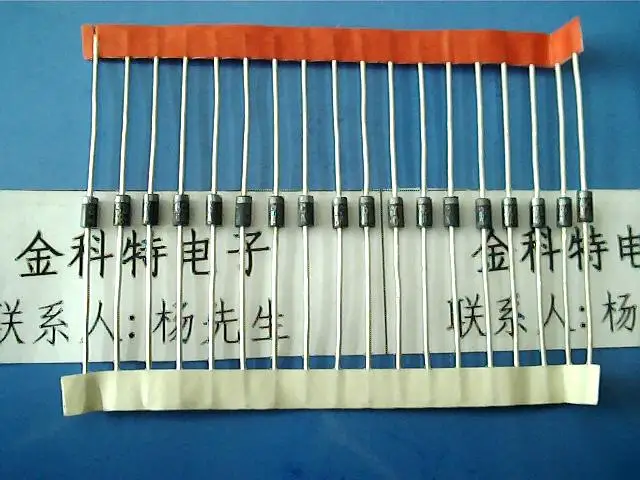 金科特电子
金科特电
联系人:杨先生
联系人:杨